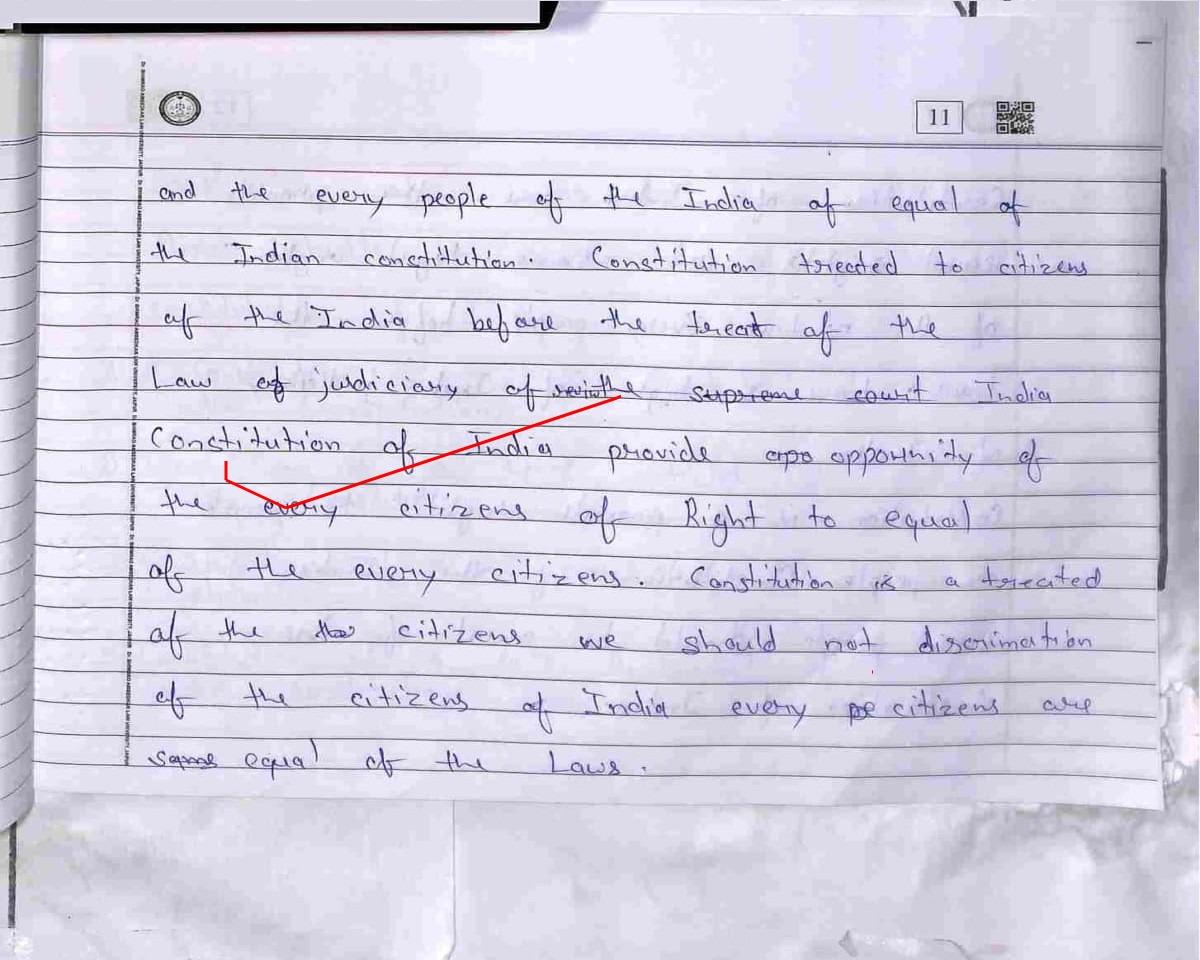 11
and the every people of the India of equal of
the Indian constitution. Constitution treated to citizens
of the India before the treat of the
Law of judiciary of the supreme court India
Constitution of India provide opportunity of
the every citizens of Right to equal
of the every citizens. Constitution is a treated
of the citizens we should not discrimation
of the citizens of India every citizens are
same equal of the Laws.